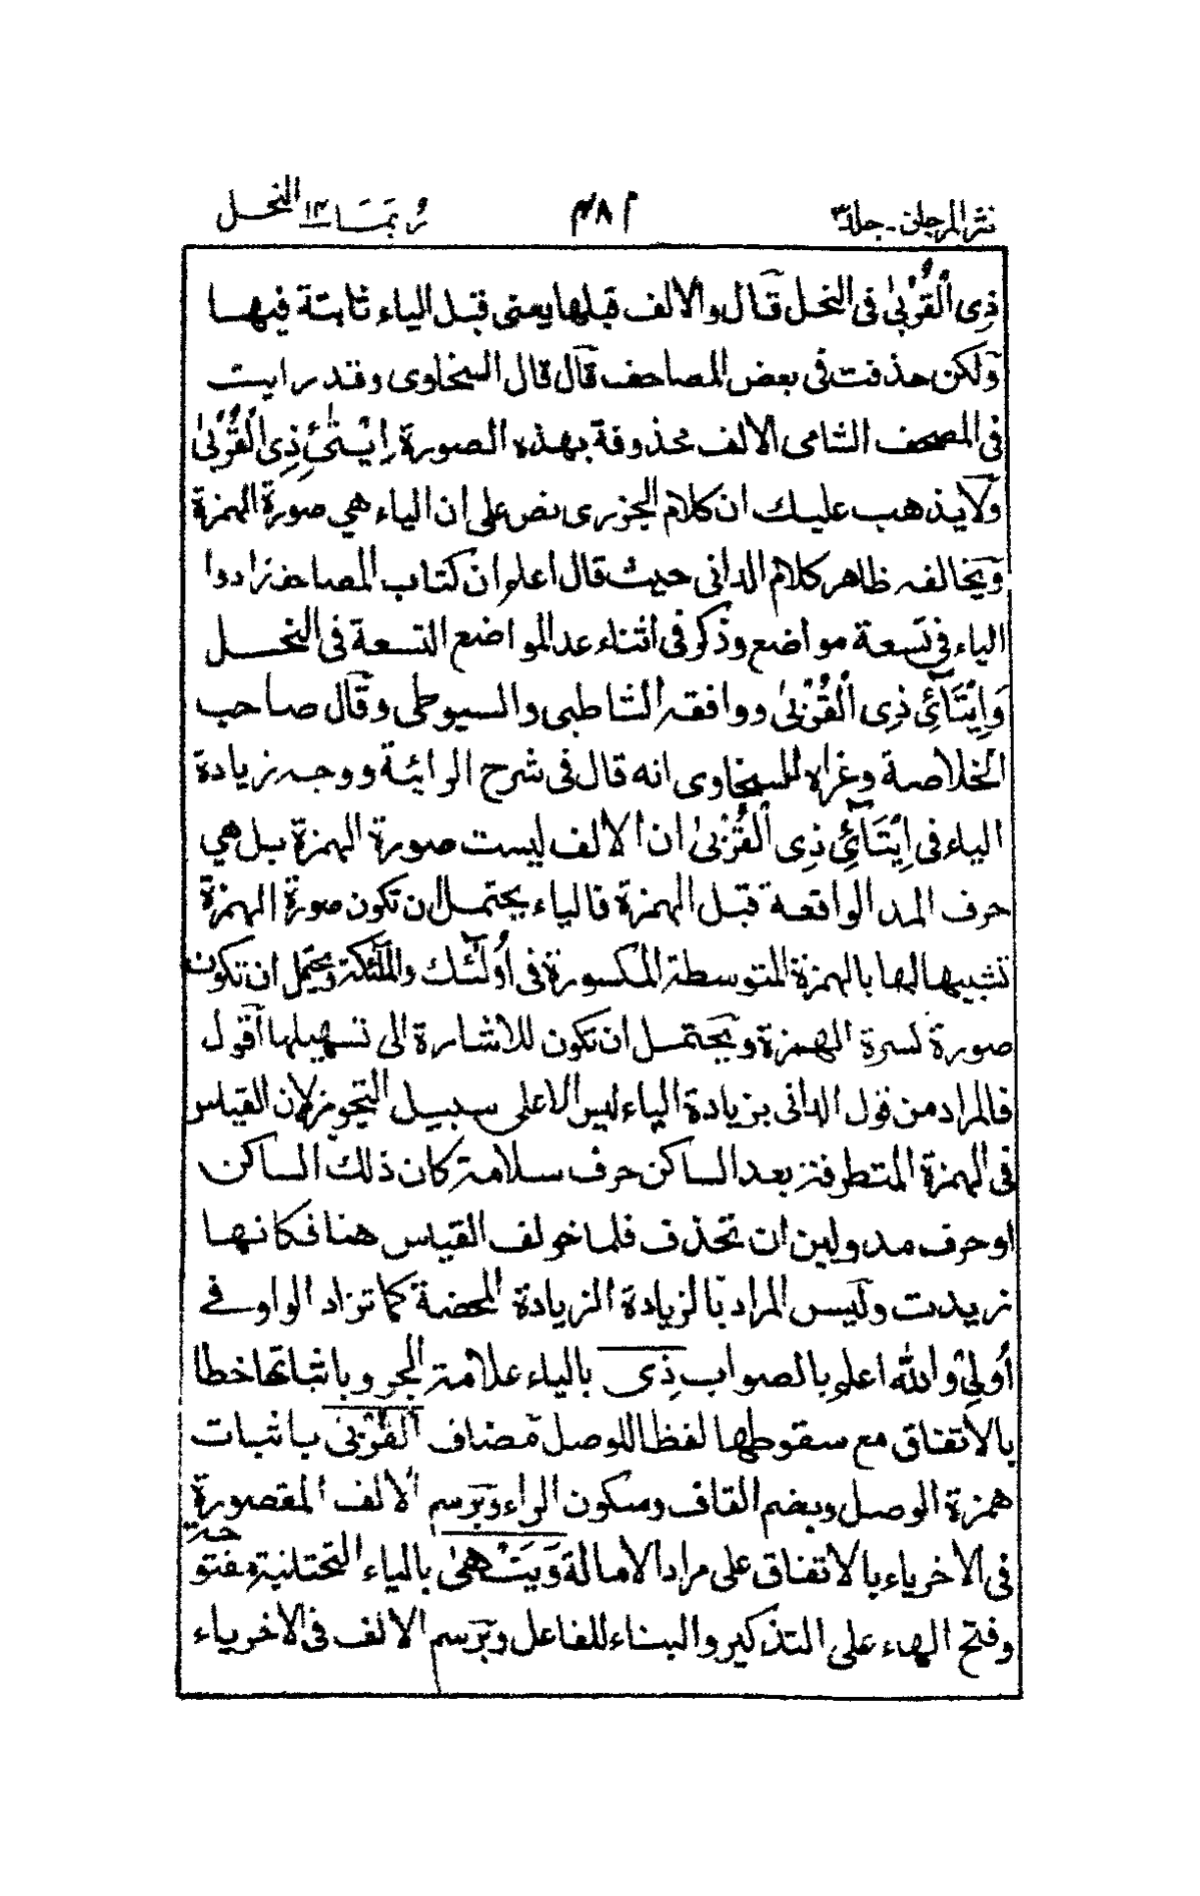 نثر المرجان - جلد ٣ ٤٨١ رُبَمَا ١٤ النحل
ذِى الْقُرْبٰى فى النحل قال والالف قبلها يعنى قبل الياء ثابتة فيها
ولكن حذفت فى بعض المصاحف قال قال السخاوى وقد رايت
فى المصحف الشامى الالف محذوفة بهذه الصورة اِيْتٰئِ ذِى الْقُرْبٰى
ولا يذهب عليك ان كلام الجزرى نص على ان الياء هي صورة الهمزة
ويخالفه ظاهر كلام الدانى حيث قال اعلم ان كتاب المصاحف زادوا
الياء فى تسعة مواضع وذكر فى اثناء عد المواضع التسعة فى النحل
وَاِيْتَآئِ ذِى الْقُرْبٰى ووافقه الشاطبى والسيوطى وقال صاحب
الخلاصة وغراه للسخاوى انه قال فى شرح الرائية ووجه زيادة
الياء فى اِيْتَآئِ ذِى الْقُرْبٰى ان الالف ليست صورة الهمزة بل هي
حرف المد الواقعة قبل الهمزة فالياء يحتمل ان تكون صورة الهمزة
تشبيها لها بالهمزة المتوسطة المكسورة فى اُولٰٓئك والملٰٓئكة ويحتمل ان تكون
صورة لسرة الهمزة ويحتمل ان تكون للاشارة الى تسهيلها اقول
فالمراد من قول الدانى بزيادة الياء ليس الا على سبيل التجوز لان القياس
فى الهمزة المتطرفة بعد الساكن حرف سلامة كان ذلك الساكن
او حرف مد ولين ان تحذف فلما خولف القياس هنا فكانها
زيدت وليس المراد بالزيادة الزيادة المحضة كما تزاد الواو فے
اُولِىْ والله اعلم بالصواب ذِى بالياء علامة الجر وباثباتها خطا
بالاتفاق مع سقوطها لفظا للوصل مضاف الْقُرْبٰى باثبات
همزة الوصل وبضم القاف وسكون الراء وبرسم الالف المقصورة
فى الاخر ياء بالاتفاق على مراد الامالة وَيَنْهٰى بالياء التحتانية مفتوحة
وفتح الهاء على التذكير والبناء للفاعل وبرسم الالف فى الاخر ياء